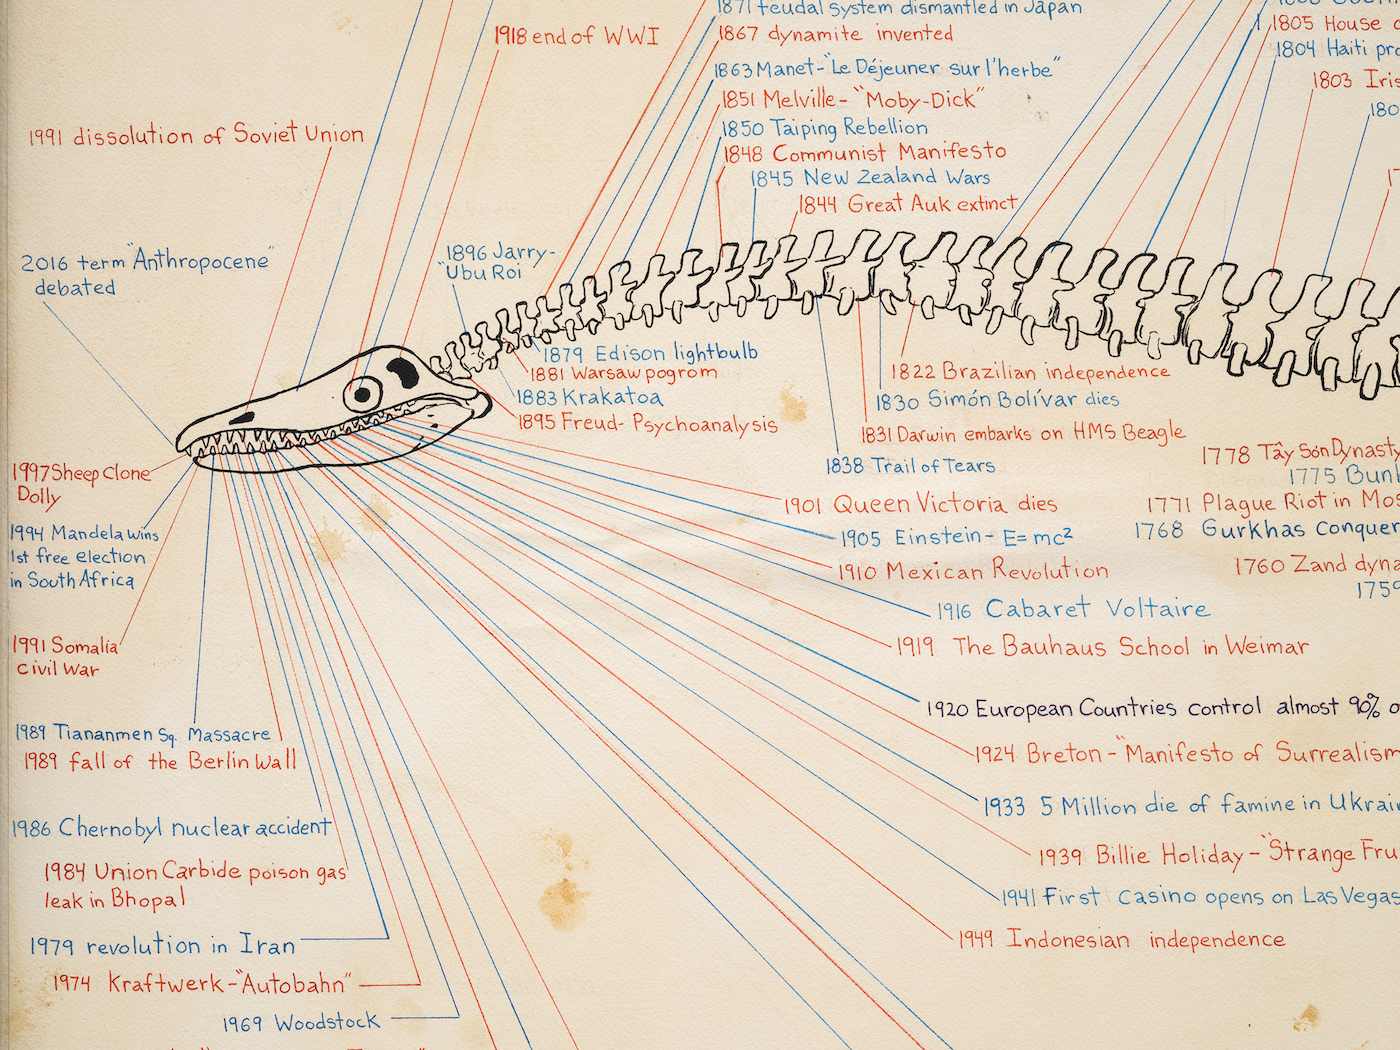 1871 feudal system dismantled in Japan
1918 end of WWI
1867 dynamite invented
1863 Manet-"Le Déjeuner sur l'herbe"
1851 Melville-"Moby-Dick"
1850 Taiping Rebellion
1848 Communist Manifesto
1845 New Zealand Wars
1844 Great Auk extinct
1805 House
1804 Haiti
1803
1991 dissolution of Soviet Union
2016 term "Anthropocene"
debated
1896 Jarry-
"Ubu Roi
1879 Edison lightbulb
1881 Warsaw pogrom
1883 Krakatoa
1895 Freud- Psychoanalysis
1822 Brazilian independence
1830 Simón Bolívar dies
1831 Darwin embarks on HMS Beagle
1838 Trail of Tears
1778 Tây Sơn Dynasty
1775
1771 Plague Riot in
1768 Gurkhas conquer
1760 Zand
1759
1997 Sheep Clone
Dolly
1994 Mandela wins
1st free election
in South Africa
1991 Somalia
Civil War
1989 Tiananmen Sq. Massacre
1989 fall of the Berlin Wall
1986 Chernobyl nuclear accident
1984 Union Carbide poison gas
leak in Bhopal
1979 revolution in Iran
1974 Kraftwerk-"Autobahn"
1969 Woodstock
1901 Queen Victoria dies
1905 Einstein- E=mc²
1910 Mexican Revolution
1916 Cabaret Voltaire
1919 The Bauhaus School in Weimar
1920 European Countries control almost 90%
1924 Breton-"Manifesto of Surrealism
1933 5 Million die of famine in
1939 Billie Holiday-"Strange
1941 First Casino opens on Las Vegas
1949 Indonesian independence